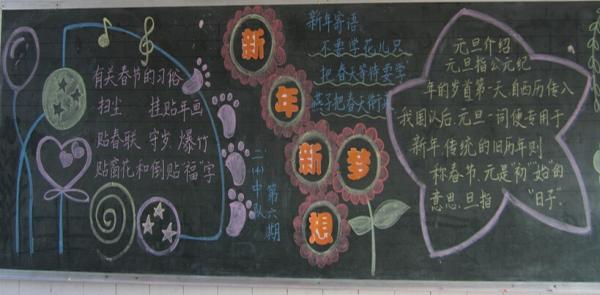 有关春节的习俗
扫尘 挂贴年画
贴春联 守岁 爆竹
贴窗花和倒贴"福"字
二(4)中队
第六期
新
年
新
梦
想
新年寄语
不要学花儿只
把春天等待要学
燕子把春天衔来
元旦介绍
元旦指公元纪
年的岁首第一天,自西历传入
我国以后,元旦一词便专用于
新年,传统的旧历年则
称春节.元是"初""始"的
意思.旦指"日子".